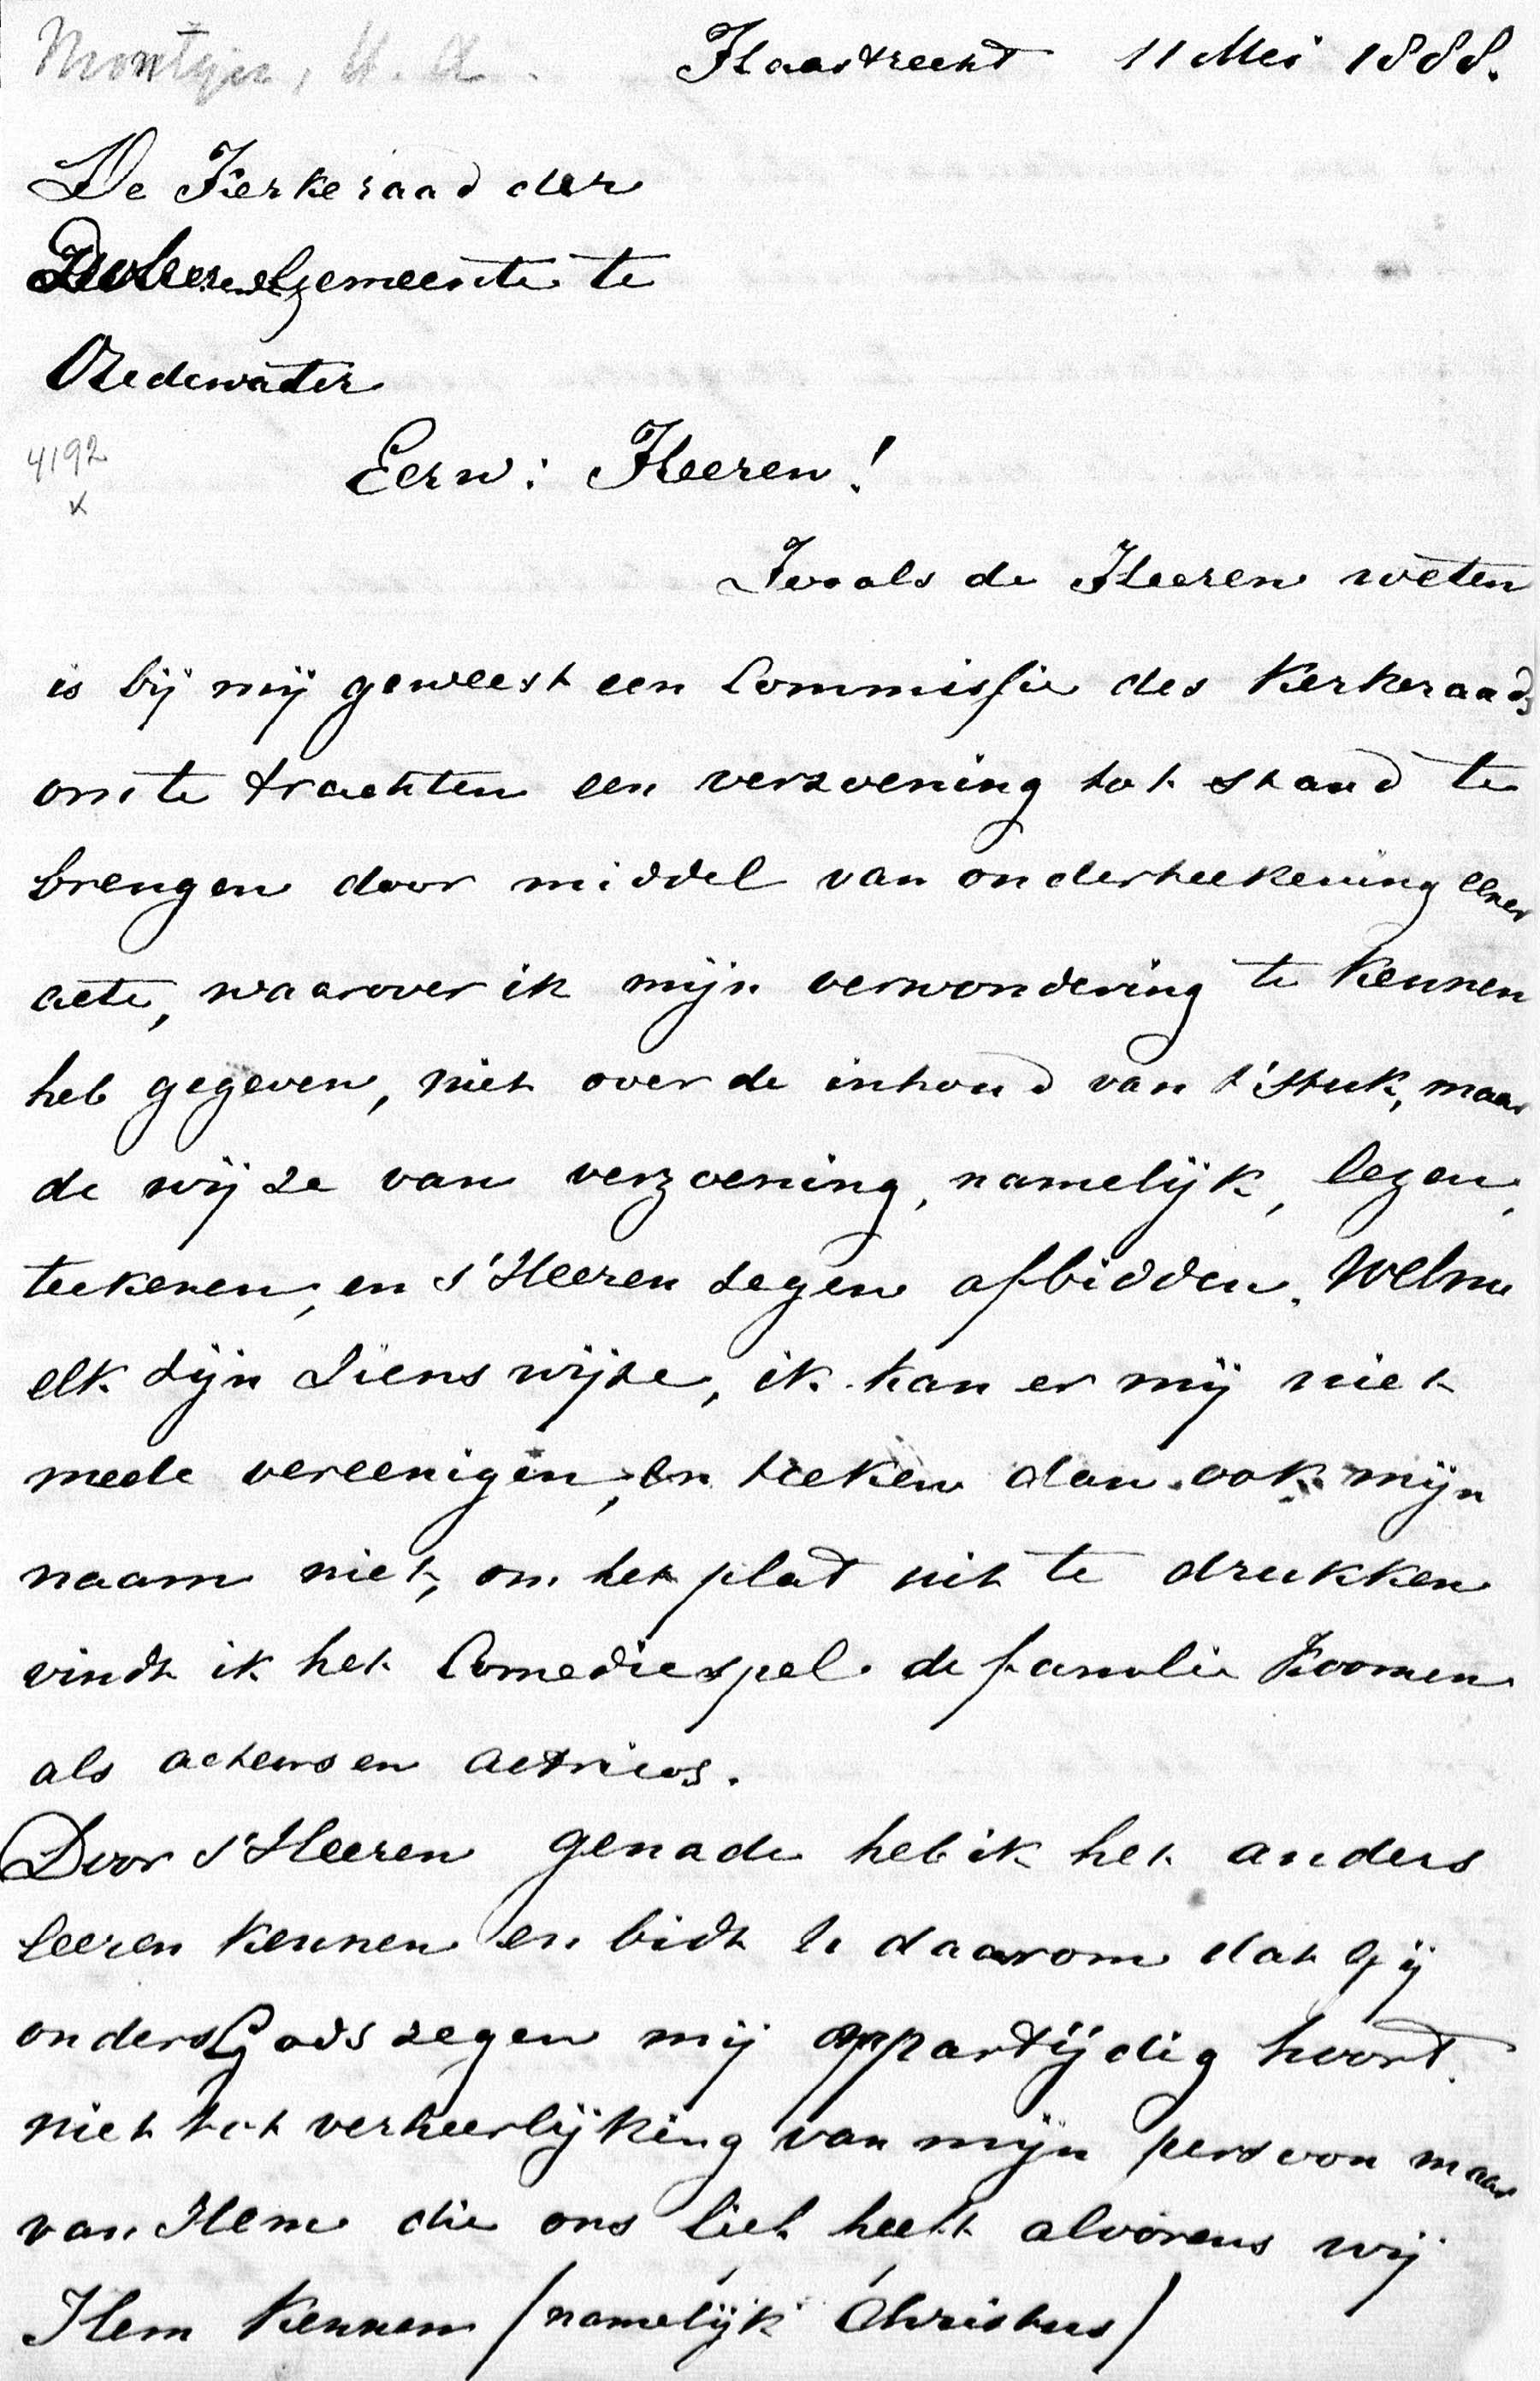 Montijn, H. A.
Haastrecht 11 Mei 1888.
De Kerkeraad der
gemeente te
Oudewater
4192
x
Eerw: Heeren!
Zooals de Heeren weten
is bij mij geweest een Commissie des Kerkeraads
om te trachten een verzoening tot stand te
brengen door middel van onderteekening eener
acte, waarover ik mijn verwondering te kennen
heb gegeven, niet over de inhoud van t'stuk, maar
de wijze van verzoening, namelijk, lezen,
teekenen, en s'Heeren zegen afbidden. Welnu
elk zijn Zienswijze, ik kan er mij niet
mede vereenigen, en teeken dan ook mijn
naam niet, om het plat uit te drukken
vindt ik het Comediespel de familie Koomen
als acteurs en actrices.
Door s'Heeren genade heb ik het anders
leeren kennen en bidt U daarom dat gij
onder Gods zegen mij onpartijdig hoort.
niet tot verheerlijking van mijn persoon maar
van Hem die ons lief heeft alvorens wij
Hem kennen (namelijk Christus)